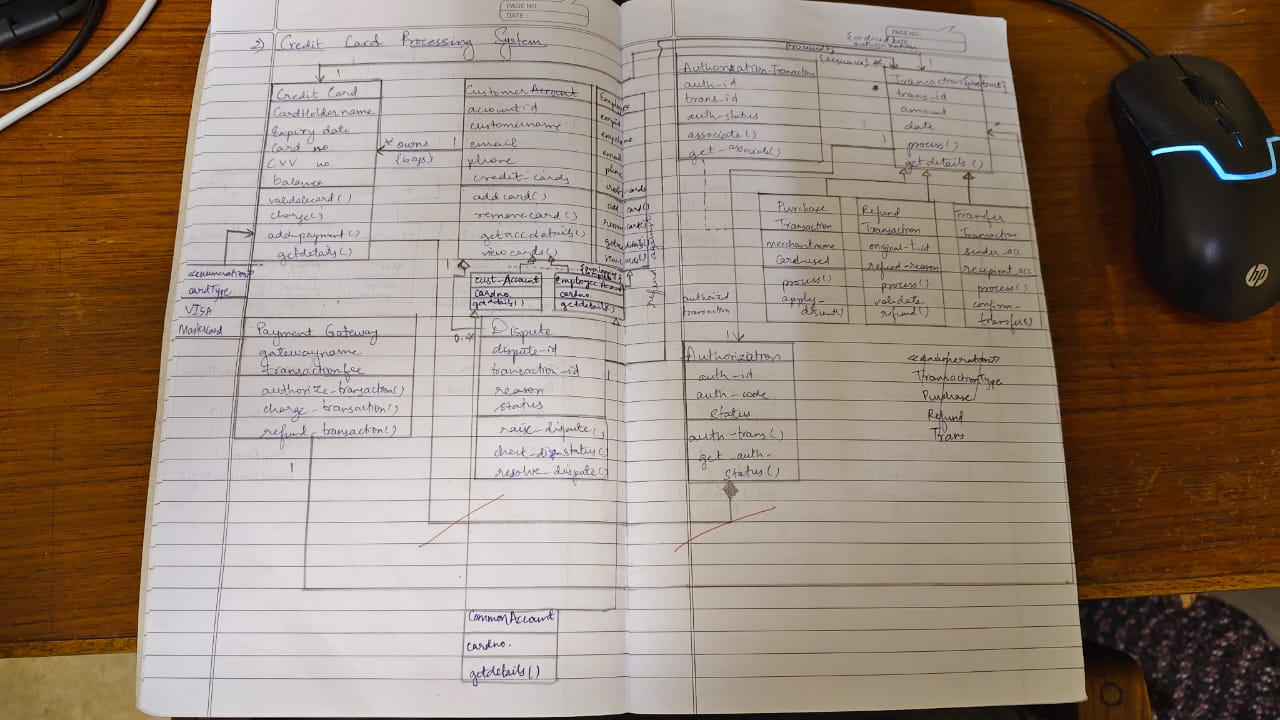 PAGE NO.
DATE:
2) Credit Card Processing System
1
Credit Card
CardHoldername
Expiry date
Card no.
CVV no.
balance
validatecard()
charge()
add-payment()
getdetails()
* owns 1
{bags}
Customer Account
accountid
customername
email
phone
credit-cards
add card()
removecard()
getaccdetails()
viewcards()
Employee
email
phone
<<enumeration>>
cardType
VISA
Mastercard
1
cust-Account
cardno.
getdetails()
Employee Account
cardno.
getdetails()
Payment Gateway
gatewayname
transactionfee
authorize-transaction()
charge-transaction()
refund-transaction()
1
Dispute
dispute-id
transaction-id
reason
status
raise-dispute()
check-disp-status()
resolve-dispute()
1
CommonAccount
cardno.
getdetails()
PAGE NO.
DATE:
authorization
{sequence} *
1
Authorization-Transaction
auth-id
trans-id
auth-status
associate()
get-associate()
Transaction{abstract}
trans-id
amount
date
process()
getdetails()
*
1
Purchase
Transaction
merchantname
Cardused
process()
apply-
discount()
Refund
Transaction
original-t-id
refund-reason
process()
validate
refund()
Transfer
Transaction
sender-acc
recipient acc
process()
confirm-
transfer()
refund
authorized
transaction
1
Authorization
auth-id
auth-code
status
auth-trans()
get-auth-
status()
TransactionType
Purchase
Refund
Trans
hp